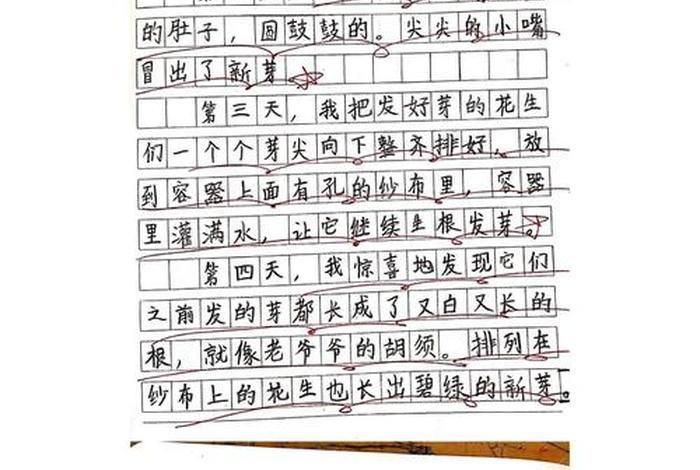 的肚子，圆鼓鼓的。尖尖的小嘴
冒出了新芽
第三天，我把发好芽的花生
们一个个芽尖向下整齐排好，放
到容器上面有孔的纱布里，容器
里灌满水，让它继续生根发芽。
第四天，我惊喜地发现它们
之前发的芽都长成了又白又长的
根，就像老爷爷的胡须。排列在
纱布上的花生也长出碧绿的新芽。